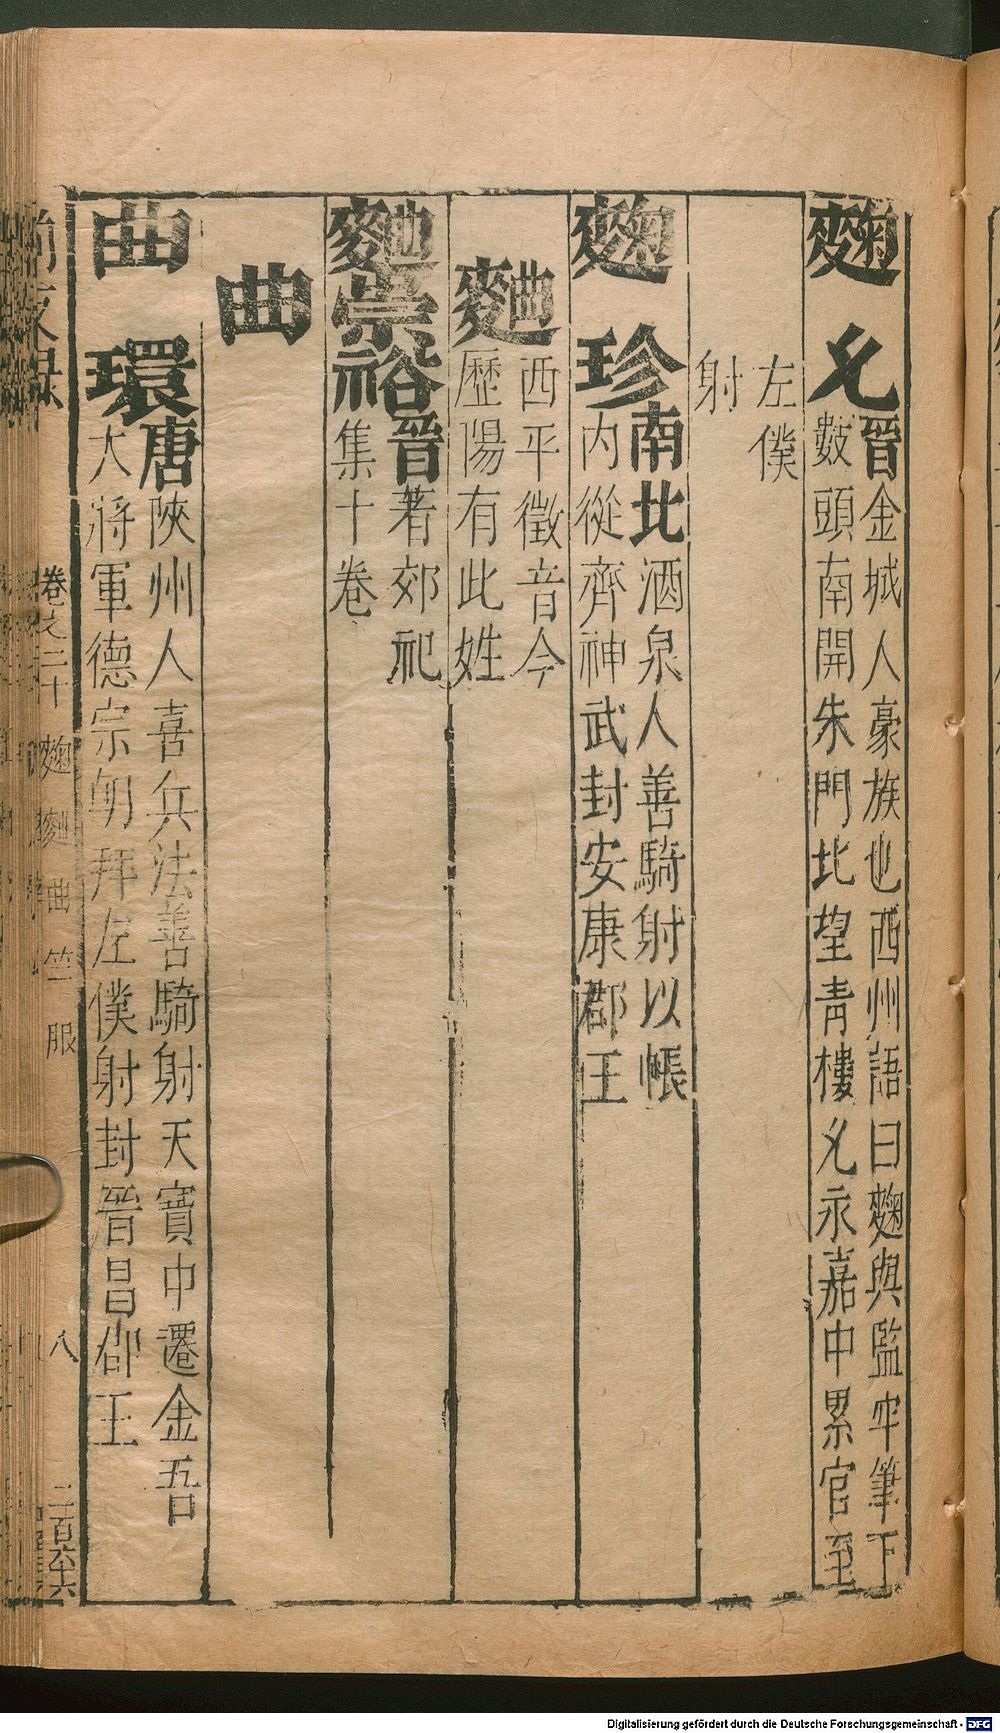 麴允晉金城人豪族也西州語曰麴與監牢筆下
數頭南開朱門北望青樓允永嘉中累官至
左僕
射
麴珍南北酒泉人善騎射以帳
內從齊神武封安康郡王
麯西平徵音今
歷陽有此姓
麯崇裕晉著郊祀
集十卷
曲
曲環唐陝州人喜兵法善騎射天寶中遷金吾
大將軍德宗朝拜左僕射封晉昌郡王
卷之二十 麴麯曲竺服 八 二百六十六
Digitalisierung gefördert durch die Deutsche Forschungsgemeinschaft - DFG